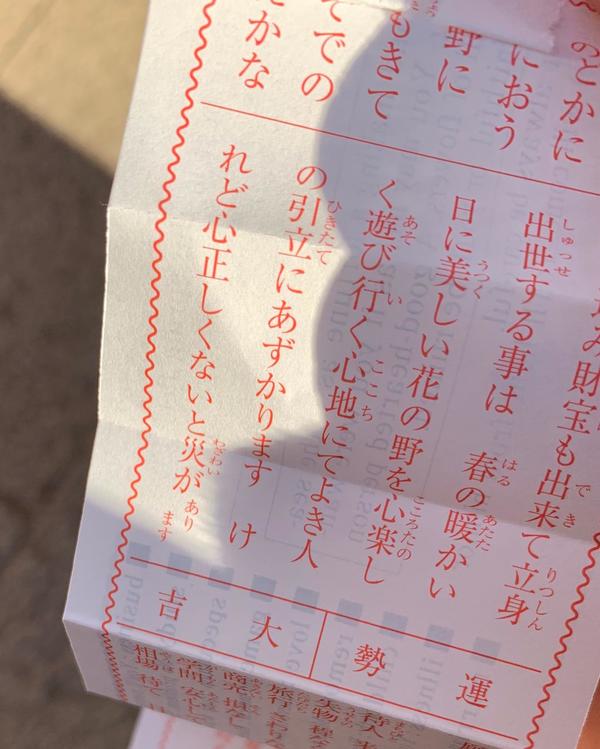 のどかに
におう
野に
もきて
での
かな
み財宝も出来て立身
出世する事は 春の暖かい
日に美しい花の野を心楽し
く遊び行く心地にてよき人
の引立にあずかります け
れど心正しくないと災があります
運勢
大吉
待人
失物
旅行
商売 損
学問 安心して
相場 待て